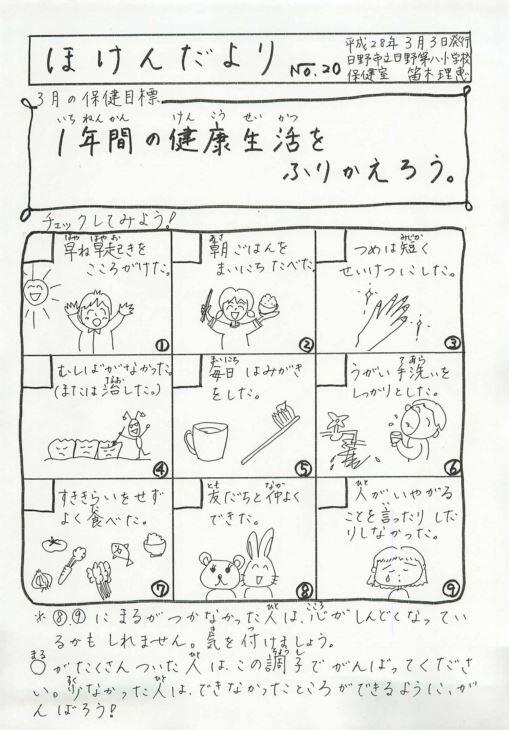 ほけんだより No.20
平成28年 3月3日発行
日野市立日野第八小学校
保健室
3月の保健目標
いちねんかん けんこうせいかつ
1年間の健康生活を
ふりかえろう。
チェックしてみよう!
はや はや お
早ね早起きを
こころがけた。
①
あさ
朝ごはんを
まいにちたべた。
②
みじか
つめは短く
せいけつにした。
③
むしばがなかった。
なお
(または治した。)
④
まいにち
毎日はみがき
をした。
⑤
てあら
うがい手洗いを
しっかりとした。
⑥
すききらいをせず
た
よく食べた。
⑦
とも なか
友だちと仲よく
できた。
⑧
ひと
人がいやがる
い
ことを言ったりした
りしなかった。
⑨
ひと こころ
*⑧⑨にまるがつかなかった人は、心がしんどくなってい
き つ
るかもしれません。気を付けましょう。
まる ひと ちょうし
○がたくさんついた人は、この調子でがんばってくださ
すく ひと
い。少なかった人は、できなかったところができるように、が
んばろう!